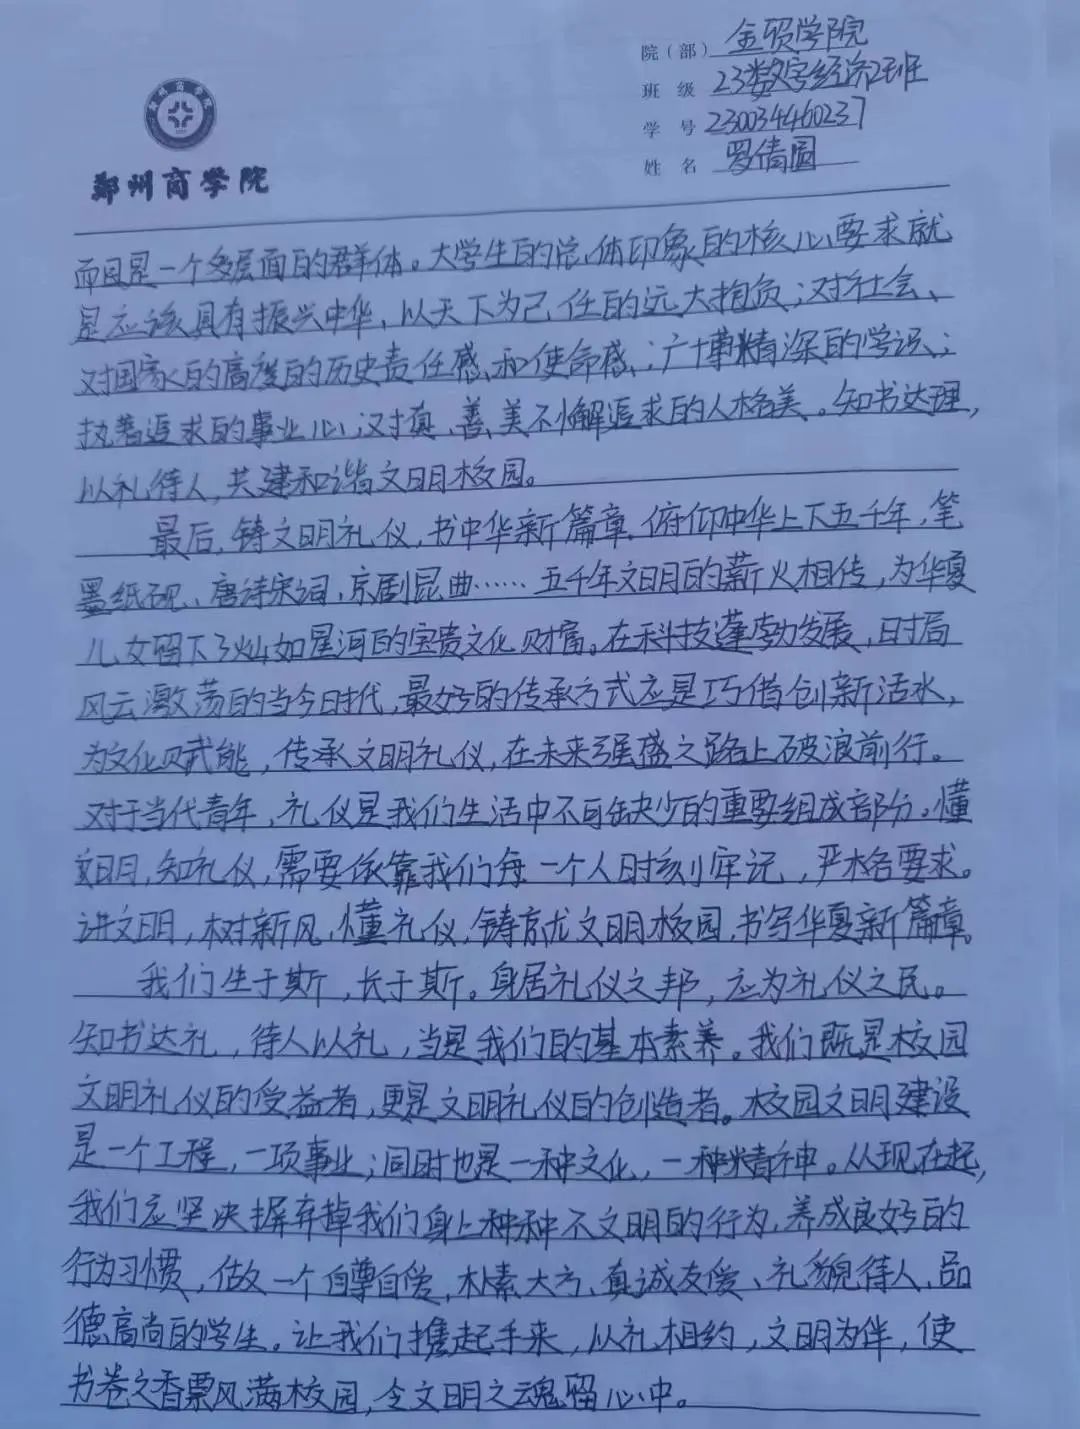 院（部） 金贸学院
班 级 23数字经济2班
学 号 230034460237
姓 名 罗倩圆
郑州商学院
而且是一个多层面的群体。大学生的总体印象的核心要求就
是应该具有振兴中华、以天下为己任的远大抱负；对社会、
对国家的高度的历史责任感和使命感；广博精深的学识；
执着追求的事业心；对真、善、美不懈追求的人格美。知书达理，
以礼待人，共建和谐文明校园。
最后，铸文明礼仪，书中华新篇章。俯仰中华上下五千年，笔
墨纸砚、唐诗宋词，京剧昆曲……五千年文明的薪火相传，为华夏
儿女留下了灿如星河的宝贵文化财富。在科技蓬勃发展，时局
风云激荡的当今时代，最好的传承方式应是巧借创新活水，
为文化赋能，传承文明礼仪，在未来强盛之路上破浪前行。
对于当代青年，礼仪是我们生活中不可缺少的重要组成部分。懂
文明，知礼仪，需要依靠我们每一个人时刻牢记，严格要求。
讲文明，树新风，懂礼仪，铸就文明校园，书写华夏新篇章。
我们生于斯，长于斯。身居礼仪之邦，应为礼仪之民。
知书达礼，待人以礼，当是我们的基本素养。我们既是校园
文明礼仪的受益者，更是文明礼仪的创造者。校园文明建设
是一个工程，一项事业；同时也是一种文化，一种精神。从现在起，
我们应坚决摒弃掉我们身上种种不文明的行为，养成良好的
行为习惯，做一个自尊自爱，朴素大方、真诚友爱、礼貌待人、品
德高尚的学生。让我们携起手来，以礼相约，文明为伴，使
书卷之香飘满校园，令文明之魂留心中。